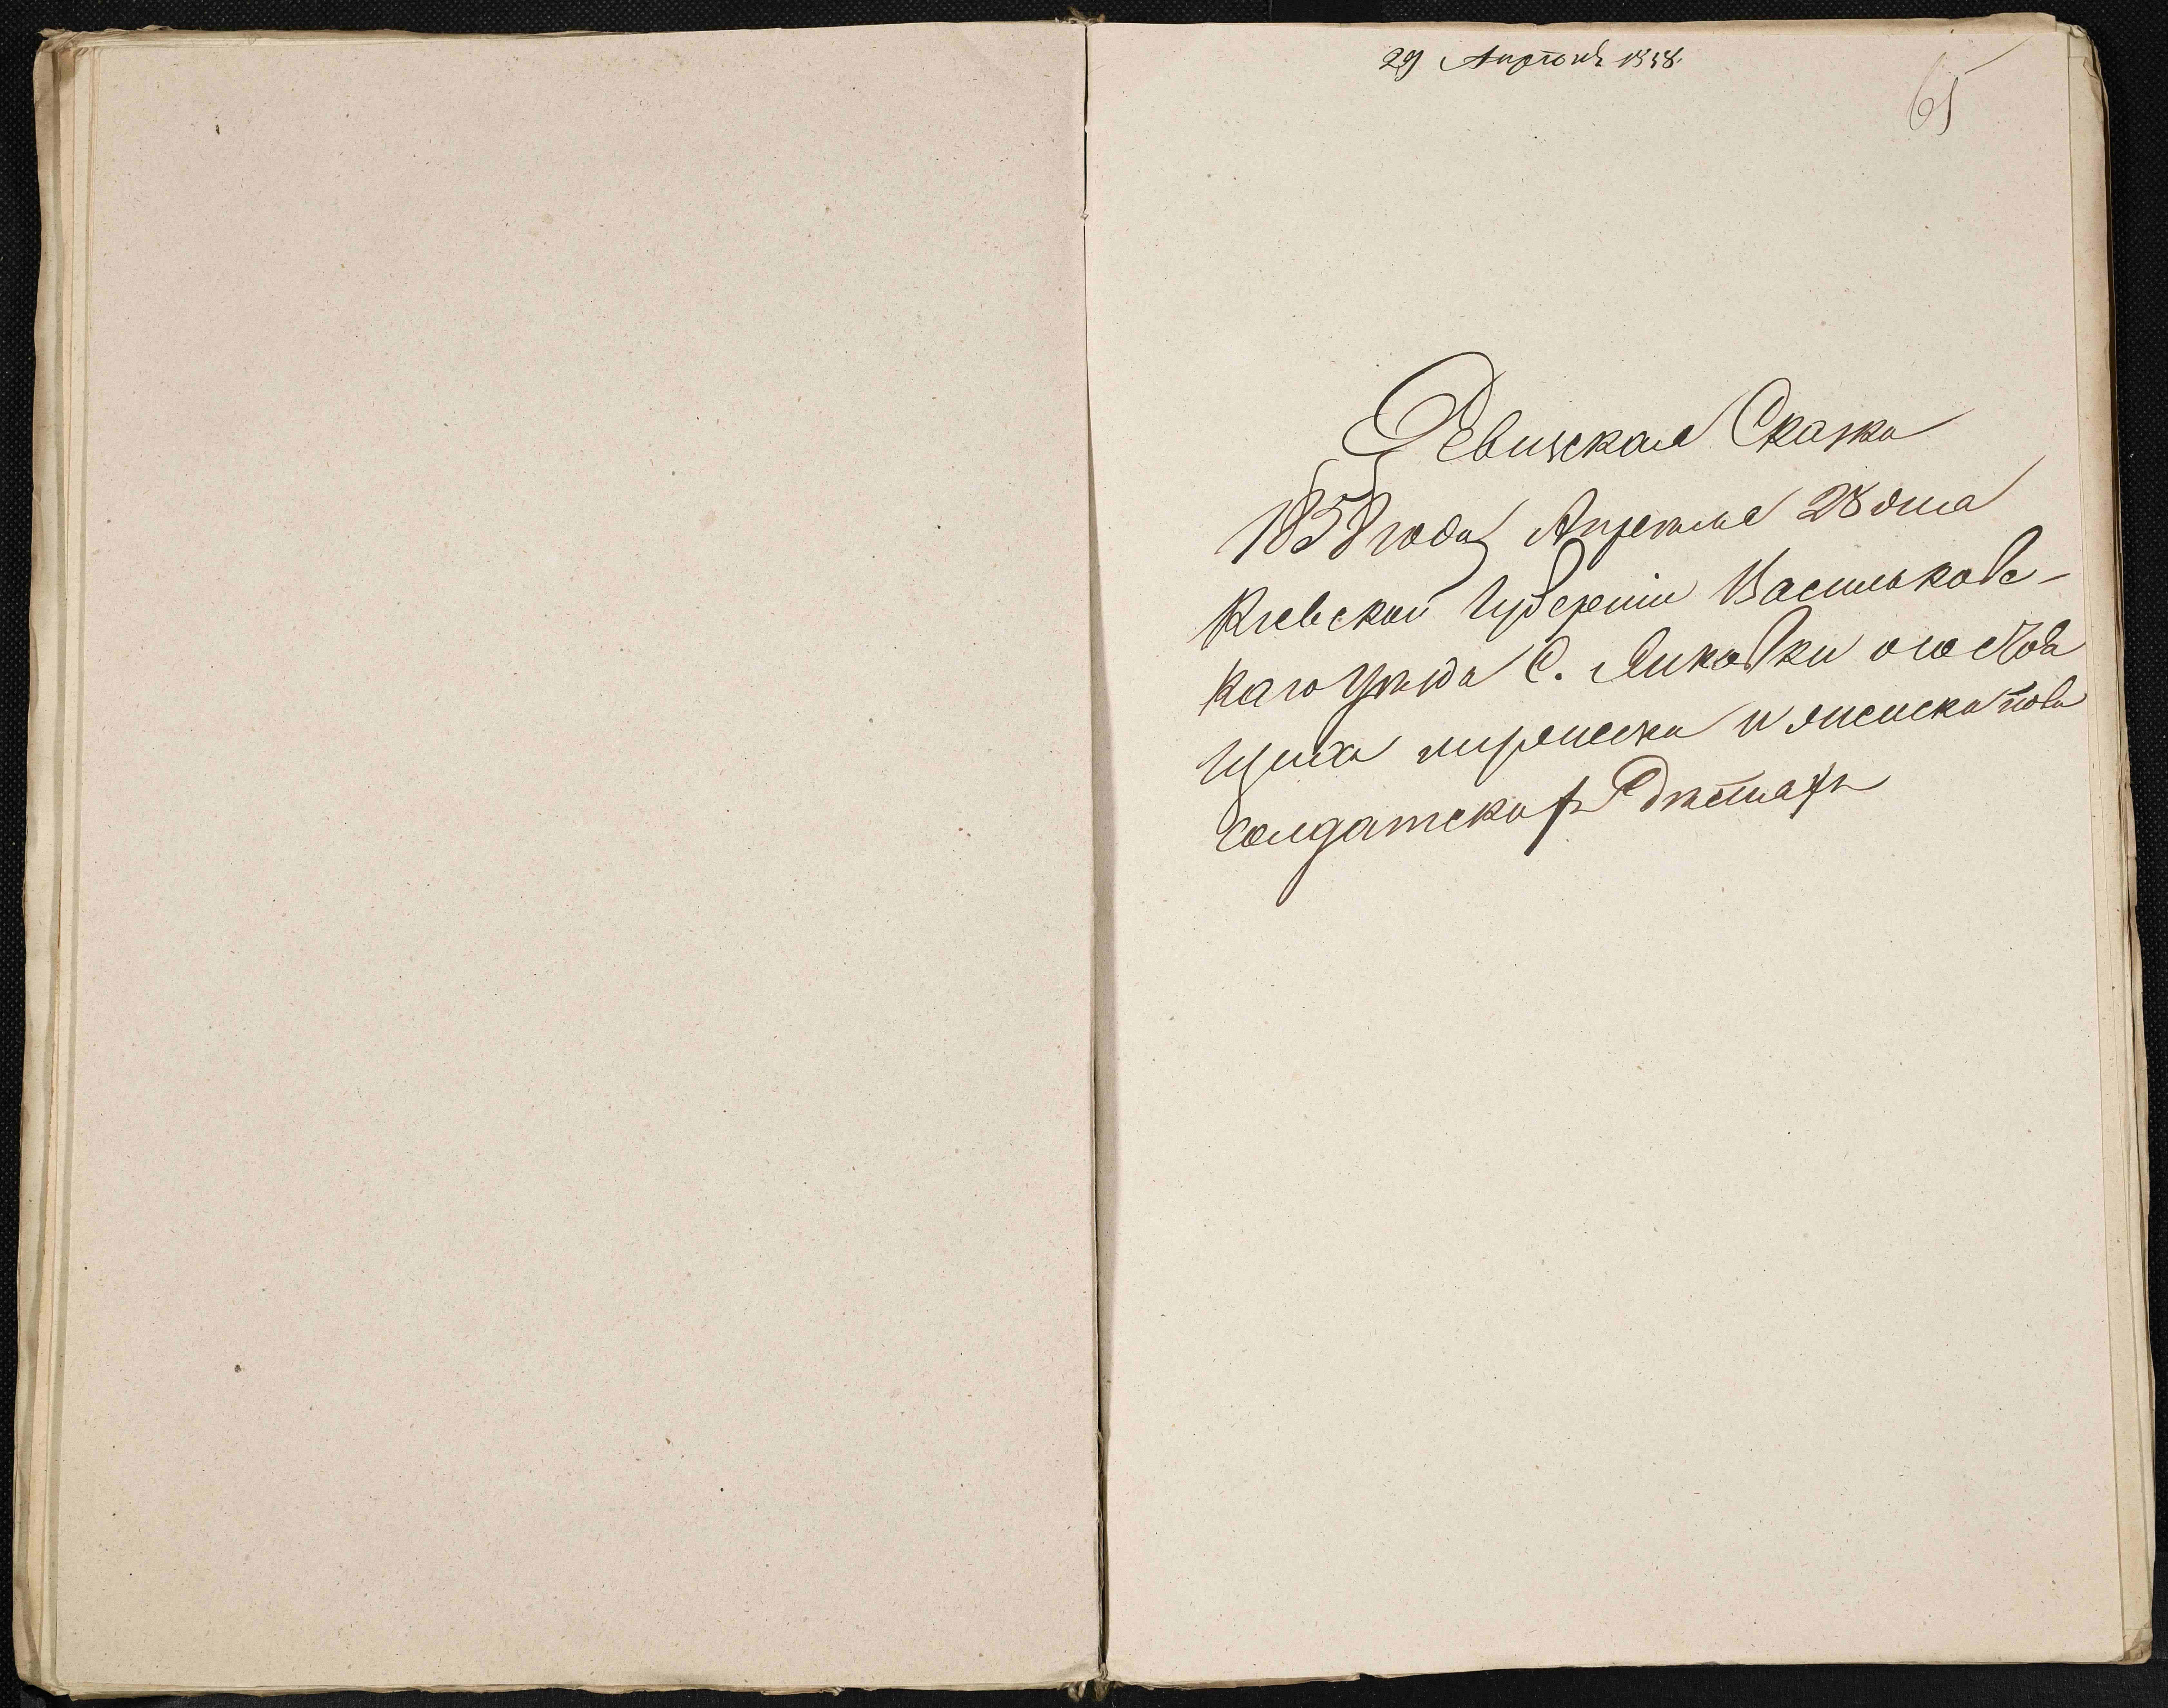 29 Апрѣля 1858.
65
Ревизская Сказка
1858 года Апреля 28 дня
Киевской Губерніи Васильковс-
каго Уѣзда С. Янковки о
мужеска и женска пола
Солдатскихъ Дѣтяхъ